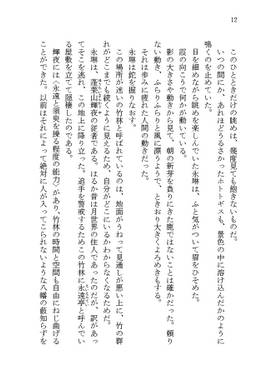 12
このひとときだけの眺めは、幾度見ても飽きないものだ。
いつの間にか、あれほどうるさかったホトトギスも、景色の中に溶け込んだかのように
鳴くのを止めていた。
目を細めながら眺めを楽しんでいた永琳は、ふと気がついて眉をひそめた。
霞の向こうで何かが動いている。
影の大きさや動きから見て、朝の新芽を食べにきた鹿ではないことは確かだった。頼り
ない動き、ふらりふらりと風に漂うようで、ときおり大きくよろめきもする。
それは歩みに疲れた人間の動きだった。
永琳は鉈を握りなおす。
この場所が迷いの竹林と呼ばれているのは、地面がうねって見通しが悪い上に、竹の群
れがどこまでも続くように見えるため、自分がどこにいるかわからなくなるためだ。
永琳は、蓬莱山輝夜の従者である。はるか昔は月世界の住人であったのだが、訳があっ
てそこを逃れ、この地上に降り立った。追手を警戒するためこの竹林に永遠亭と呼んでい
る屋敷を立てて隠棲したのである。
輝夜には〈永遠と須臾を操る程度の能力〉があり、竹林の時間と空間も自由にねじ曲げる
ことができた。以前はそれによって絶対に人が入ってこられないような八幡の藪知らずを